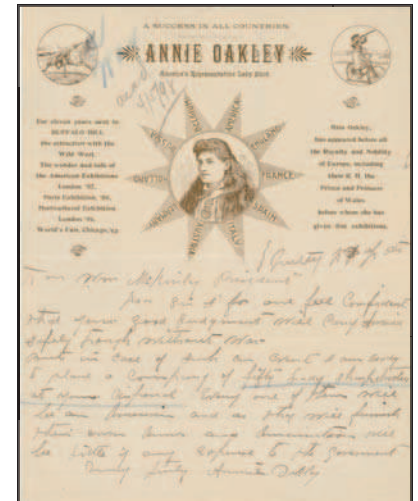 A SUCCESS IN ALL COUNTRIES
ANNIE OAKLEY
America's Representative Lady Shot
For eleven years next to
BUFFALO BILL
the attraction with the
Wild West.
The wonder and talk of
the American Exhibitions
London '87,
Paris Exhibition, '89,
Horticultural Exhibition
London '92,
World's Fair, Chicago, '93
Miss Oakley,
has appeared before all
the Royalty and Nobility
of Europe, including
their R. H. the
Prince and Princess
of Wales
before whom she has
given five exhibitions.
AMERICA
ENGLAND
FRANCE
SPAIN
ITALY
Hon Wm McKinley President
Dear Sir I for one feel Confident
that your good judgment will carry America
safely through without war
But in case of such an event I am ready
to place a Company of fifty lady sharpshooters
at your disposal. Every one of them will
be an American and as they will furnish
their own Arms and Ammunition will
be little if any expense to the government
Very truly Annie Oakley